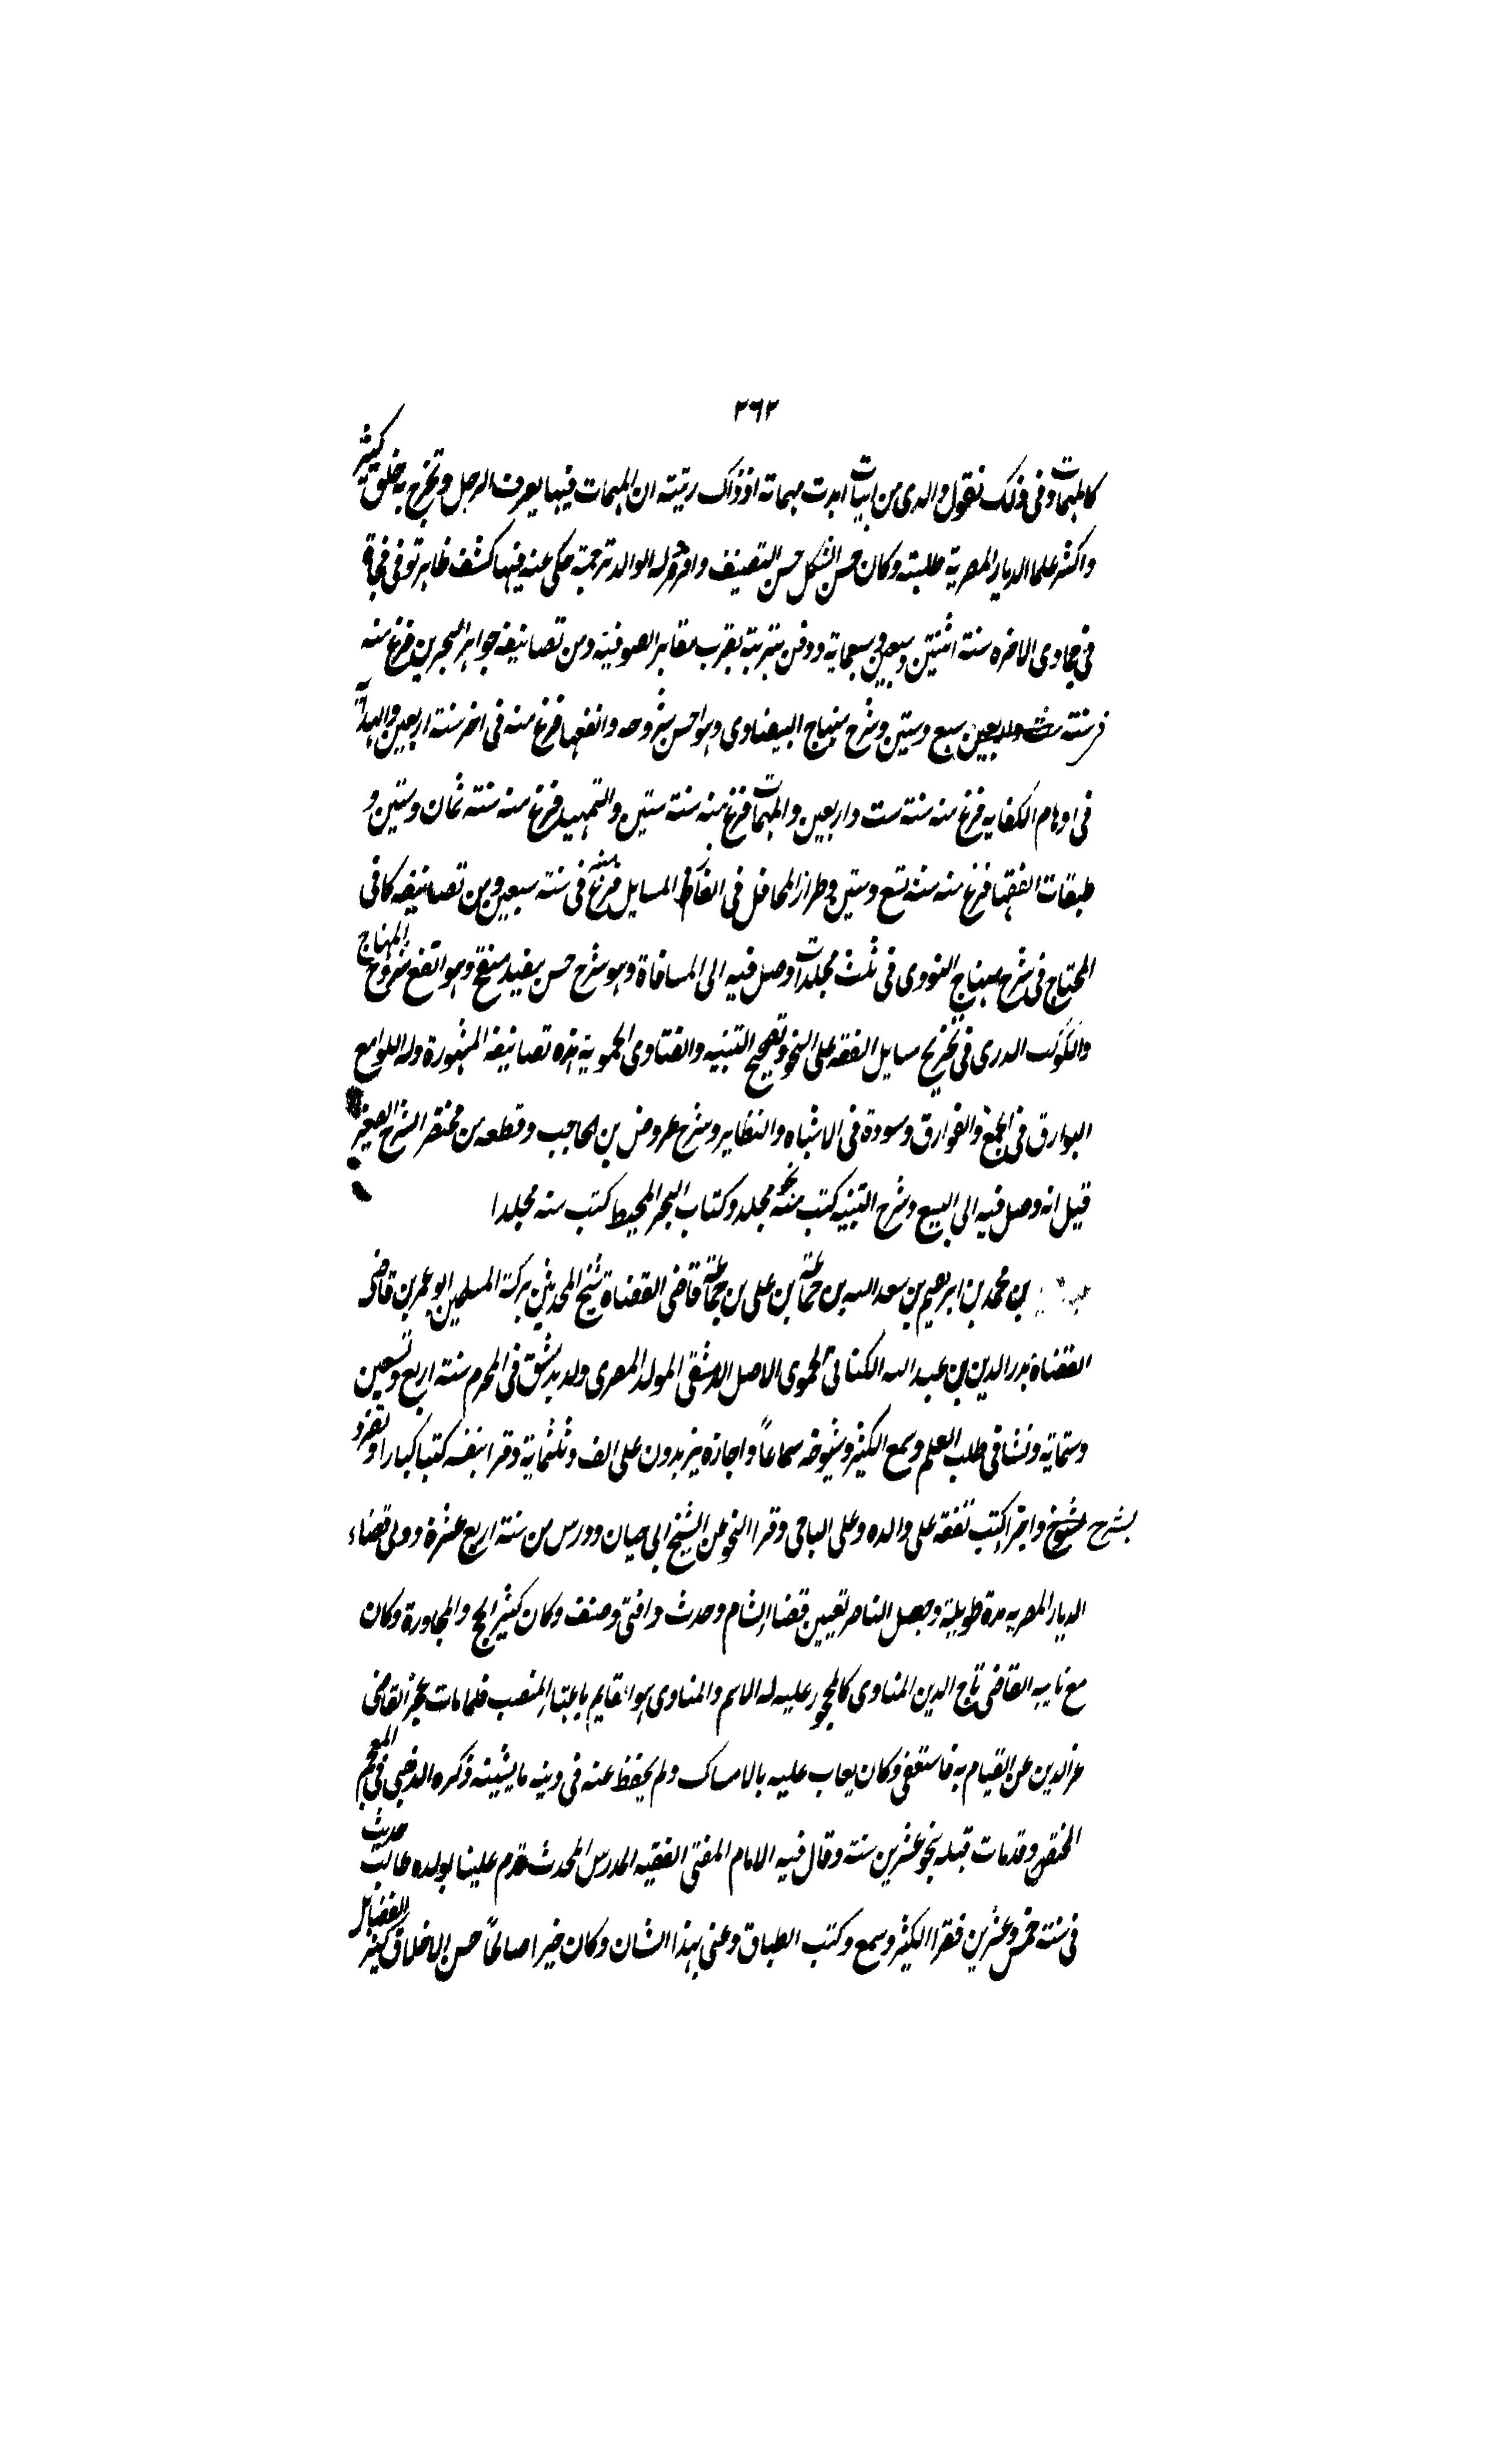 ٣٦٢
كالمهمات وفي ذلك نقول والدي من ابيات ابدت مهماته اذ ذاك رتبته ان المهمات فيها يعرف الرجل وتخرج به خلق كثير
واكثر علما الديار المصرية طلبته وكان حسن الشكل حسن التصنيف وافرد له الوالد ترجمة حكى عنه فيها كشف ظاهر توفى فجاة
في جمادى الاخره سنة اثنتين وسبعين وسبعماية ودفن بتربته بقرب مقابر الصوفية ومن تصانيفه جواهر البحرين فرغ منه
سنة سبع وستين وشرح منهاج البيضاوى وهو احسن شروحه وانفعها فرغ منه في اخر سنة اربعين والهداية
في اوهام الكفايه فرغ منه سنة ست واربعين والمهمات فرغ منه سنة ستين والتمهيد فرغ منه سنة ثمان وستين و
طبقات الفقها فرغ منه سنة تسع وستين وطراز المحافل في الغاز المسايل فرغ منه في سنة سبعين ومن تصانيفه كافى
المحتاج في شرح منهاج النووى في ثلث مجلدات وصل فيه الى المساقاة وهو شرح حسن مفيد منقح وهو انفع شروح المنهاج
والكوكب الدرى في تخريج مسايل الفقه على النحو وتصحيح التنبيه والفتاوى الحموية هذه تصانيفه المشهورة وله اللوامع
البوارق في الجمع والفوارق ومسودة في الاشباه والنظاير وشرح عروض بن الحاجب وقطعه من مختصر الشرح الصغير
قيل انه وصل فيه الى البيع وشرح التنبيه كتب منه نحو مجلد وكتاب البحر المحيط كتب منه مجلدا
بن محمد بن ابرهيم بن سعد الله بن جماعة بن على بن جماعة قاضى القضاة شيخ المحدثين بركة المسلمين ابو عمر بن قاضى
القضاة بدر الدين بن عبد الله الكنانى الحموى الاصل الدمشقى المولد المصرى ولد بدمشق في المحرم سنة اربع وتسعين
وستماية ونشا في طلب العلم وسمع الكثير وشيوخه سماعاً واجازه يزيدون على الف وثلثماية وقرا بنفسه كتبا كبارا وتفرد
شيوخ واجزا كتب تفقه على والده وعلى الباجى وقرا النحو على الشيخ ابى حيان ودرس من سنة اربع عشرة وولى قضاء
الديار المصريه مدة طويلة وجعل الناصر تعيين قضا الشام وحدث وافتى وصنف وكان كثير الحج والمجاورة وكان
مع نايبه القاضى تاج الدين المناوى كالمحجور عليه له الاسم والمناوى هو القايم باعبا المنصب فلما مات عجز القاضى
عز الدين عن القيام به فاستعفى وكان يعاب عليه بالامساك ولم يحفظ عنه في دينه ما يشينه ذكره الذهبى في المعجم
المختص وقد مات قبله بنحو عشرين سنة وقال فيه الامام المفتى الفقيه المدرس المحدث قدم علينا بولده طالب حديث
في سنة خمس وعشرين فقرا الكثير وسمع وكتب الطباق وعنى بهذا الشان وكان خيرا صالحاً حسن الاخلاق كثير الفضايل